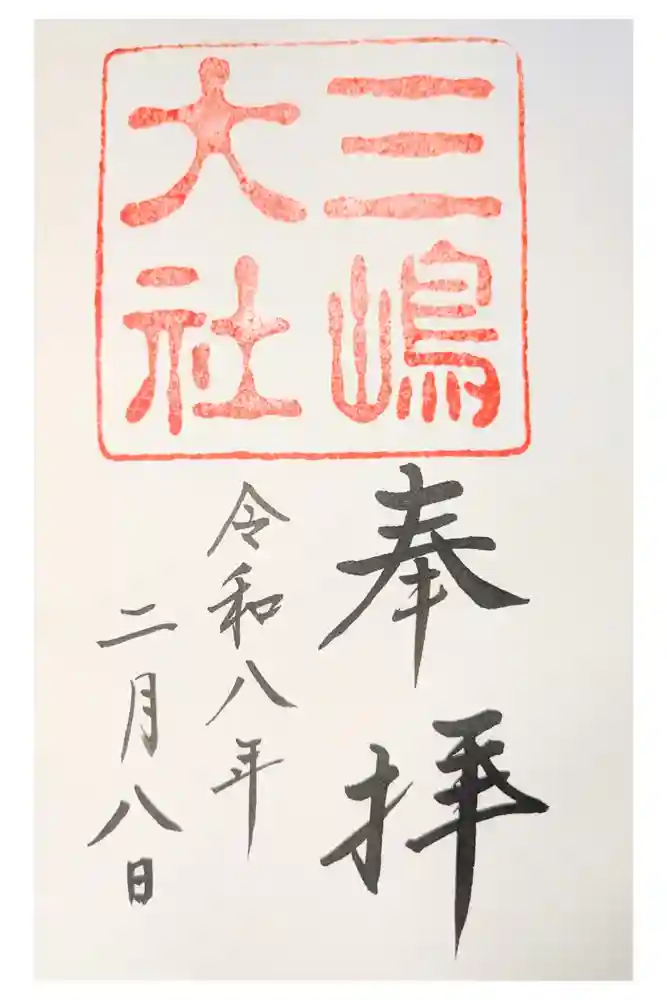 三嶋
大社
奉拝
令和八年
二月八日